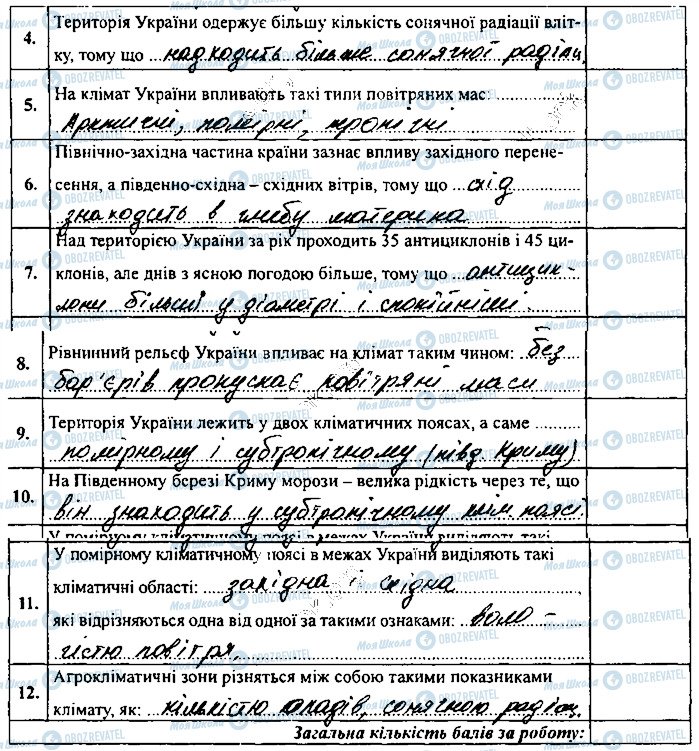 4. Територія України одержує більшу кількість сонячної радіації вліт-
ку, тому що надходить більше сонячної радіац.
5. На клімат України впливають такі типи повітряних мас:
Арктичні, помірні, тропічні
6. Північно-західна частина країни зазнає впливу західного перене-
сення, а південно-східна – східних вітрів, тому що схід
знаходить в глибу материка
7. Над територією України за рік проходить 35 антициклонів і 45 ци-
клонів, але днів з ясною погодою більше, тому що антицик-
лони більші у діаметрі і спокійніші.
8. Рівнинний рельєф України впливає на клімат таким чином: без
бар'єрів пропускає повітряні маси
9. Територія України лежить у двох кліматичних поясах, а саме
помірному і субтропічному (півд. Криму)
10. На Південному березі Криму морози – велика рідкість через те, що
він знаходить у субтропічному клім. поясі
У помірному кліматичному поясі в межах України виділяють такі
11. У помірному кліматичному поясі в межах України виділяють такі
кліматичні області: західна і східна,
які відрізняються одна від одної за такими ознаками: воло-
гістю повітря
12. Агрокліматичні зони різняться між собою такими показниками
клімату, як: кількістю опадів, сонячною радіац.
Загальна кількість балів за роботу: